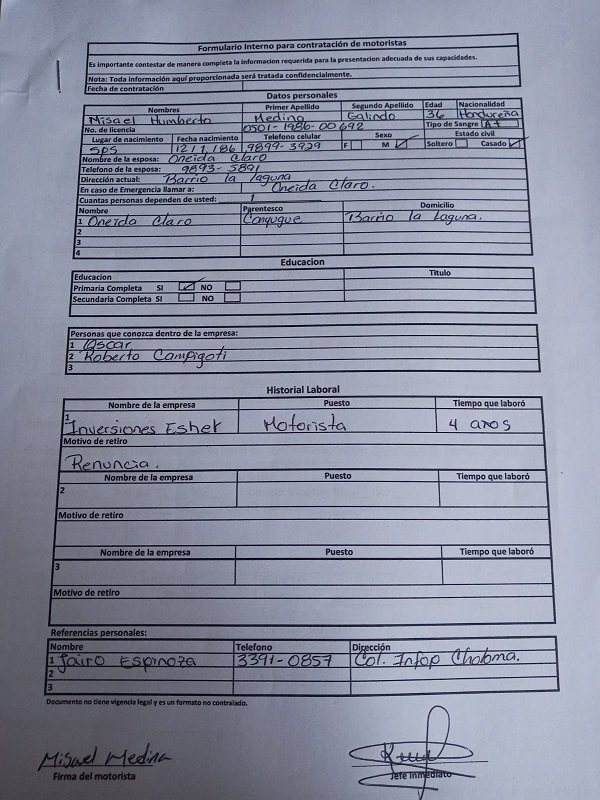 Formulario Interno para contratación de motoristas
Es importante contestar de manera completa la informacion requerida para la presentacion adecuada de sus capacidades.
Nota: Toda información aquí proporcionada será tratada confidencialmente.
Fecha de contratación
Datos personales
Nombres Primer Apellido Segundo Apellido Edad Nacionalidad
Misael Humberto Medina Galindo 36 Hondureña
No. de licencia 0501-1986-00692 Tipo de Sangre A+
Lugar de nacimiento Fecha nacimiento Telefono celular Sexo Estado civil
SPS 12/1/86 9899-3929 F M Soltero Casado
Nombre de la esposa: Oneida Claro
Telefono de la esposa: 9893-5891
Dirección actual: Barrio la laguna
En caso de Emergencia llamar a: Oneida Claro.
Cuantas personas dependen de usted: 1
Nombre Parentesco Domicilio
1 Oneida Claro Conyugue Barrio la Laguna.
2
3
4
Educacion
Educacion Titulo
Primaria Completa SI NO
Secundaria Completa SI NO
Personas que conozca dentro de la empresa:
1 Oscar
2 Roberto Campigoti
3
Historial Laboral
Nombre de la empresa Puesto Tiempo que laboró
1 Inversiones Eshet Motorista 4 años
Motivo de retiro
Renuncia.
Nombre de la empresa Puesto Tiempo que laboró
2
Motivo de retiro
Nombre de la empresa Puesto Tiempo que laboró
3
Motivo de retiro
Referencias personales:
Nombre Telefono Dirección
1 Jairo Espinoza 3391-0857 Col. Infop Choloma.
2
3
Documento no tiene vigencia legal y es un formato no contralado.
Misael Medina
Firma del motorista Jefe Inmediato